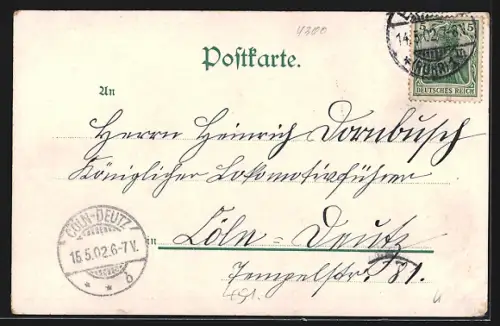 4300
5 5
14.5.02.7-8V.
(RUHR)
DEUTSCHES REICH
Postkarte.
An
Herrn Heinrich Dornbusch
Königlicher Lokomotivführer
in Cöln-Deutz
Tempelstr. 31.
CÖLN-DEUTZ
15.5.02.6-7V.
* * b